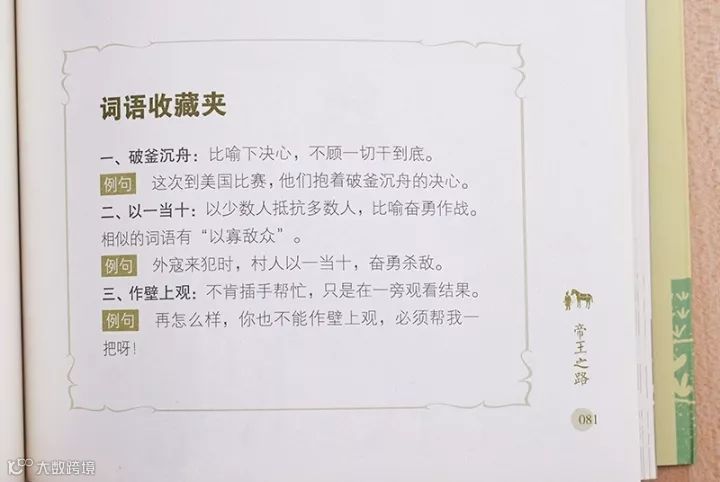 词语收藏夹
一、破釜沉舟：比喻下决心，不顾一切干到底。
例句 这次到美国比赛，他们抱着破釜沉舟的决心。
二、以一当十：以少数人抵抗多数人，比喻奋勇作战。
相似的词语有“以寡敌众”。
例句 外寇来犯时，村人以一当十，奋勇杀敌。
三、作壁上观：不肯插手帮忙，只是在一旁观看结果。
例句 再怎么样，你也不能作壁上观，必须帮我一
把呀！
帝王之路
081
大数跨境